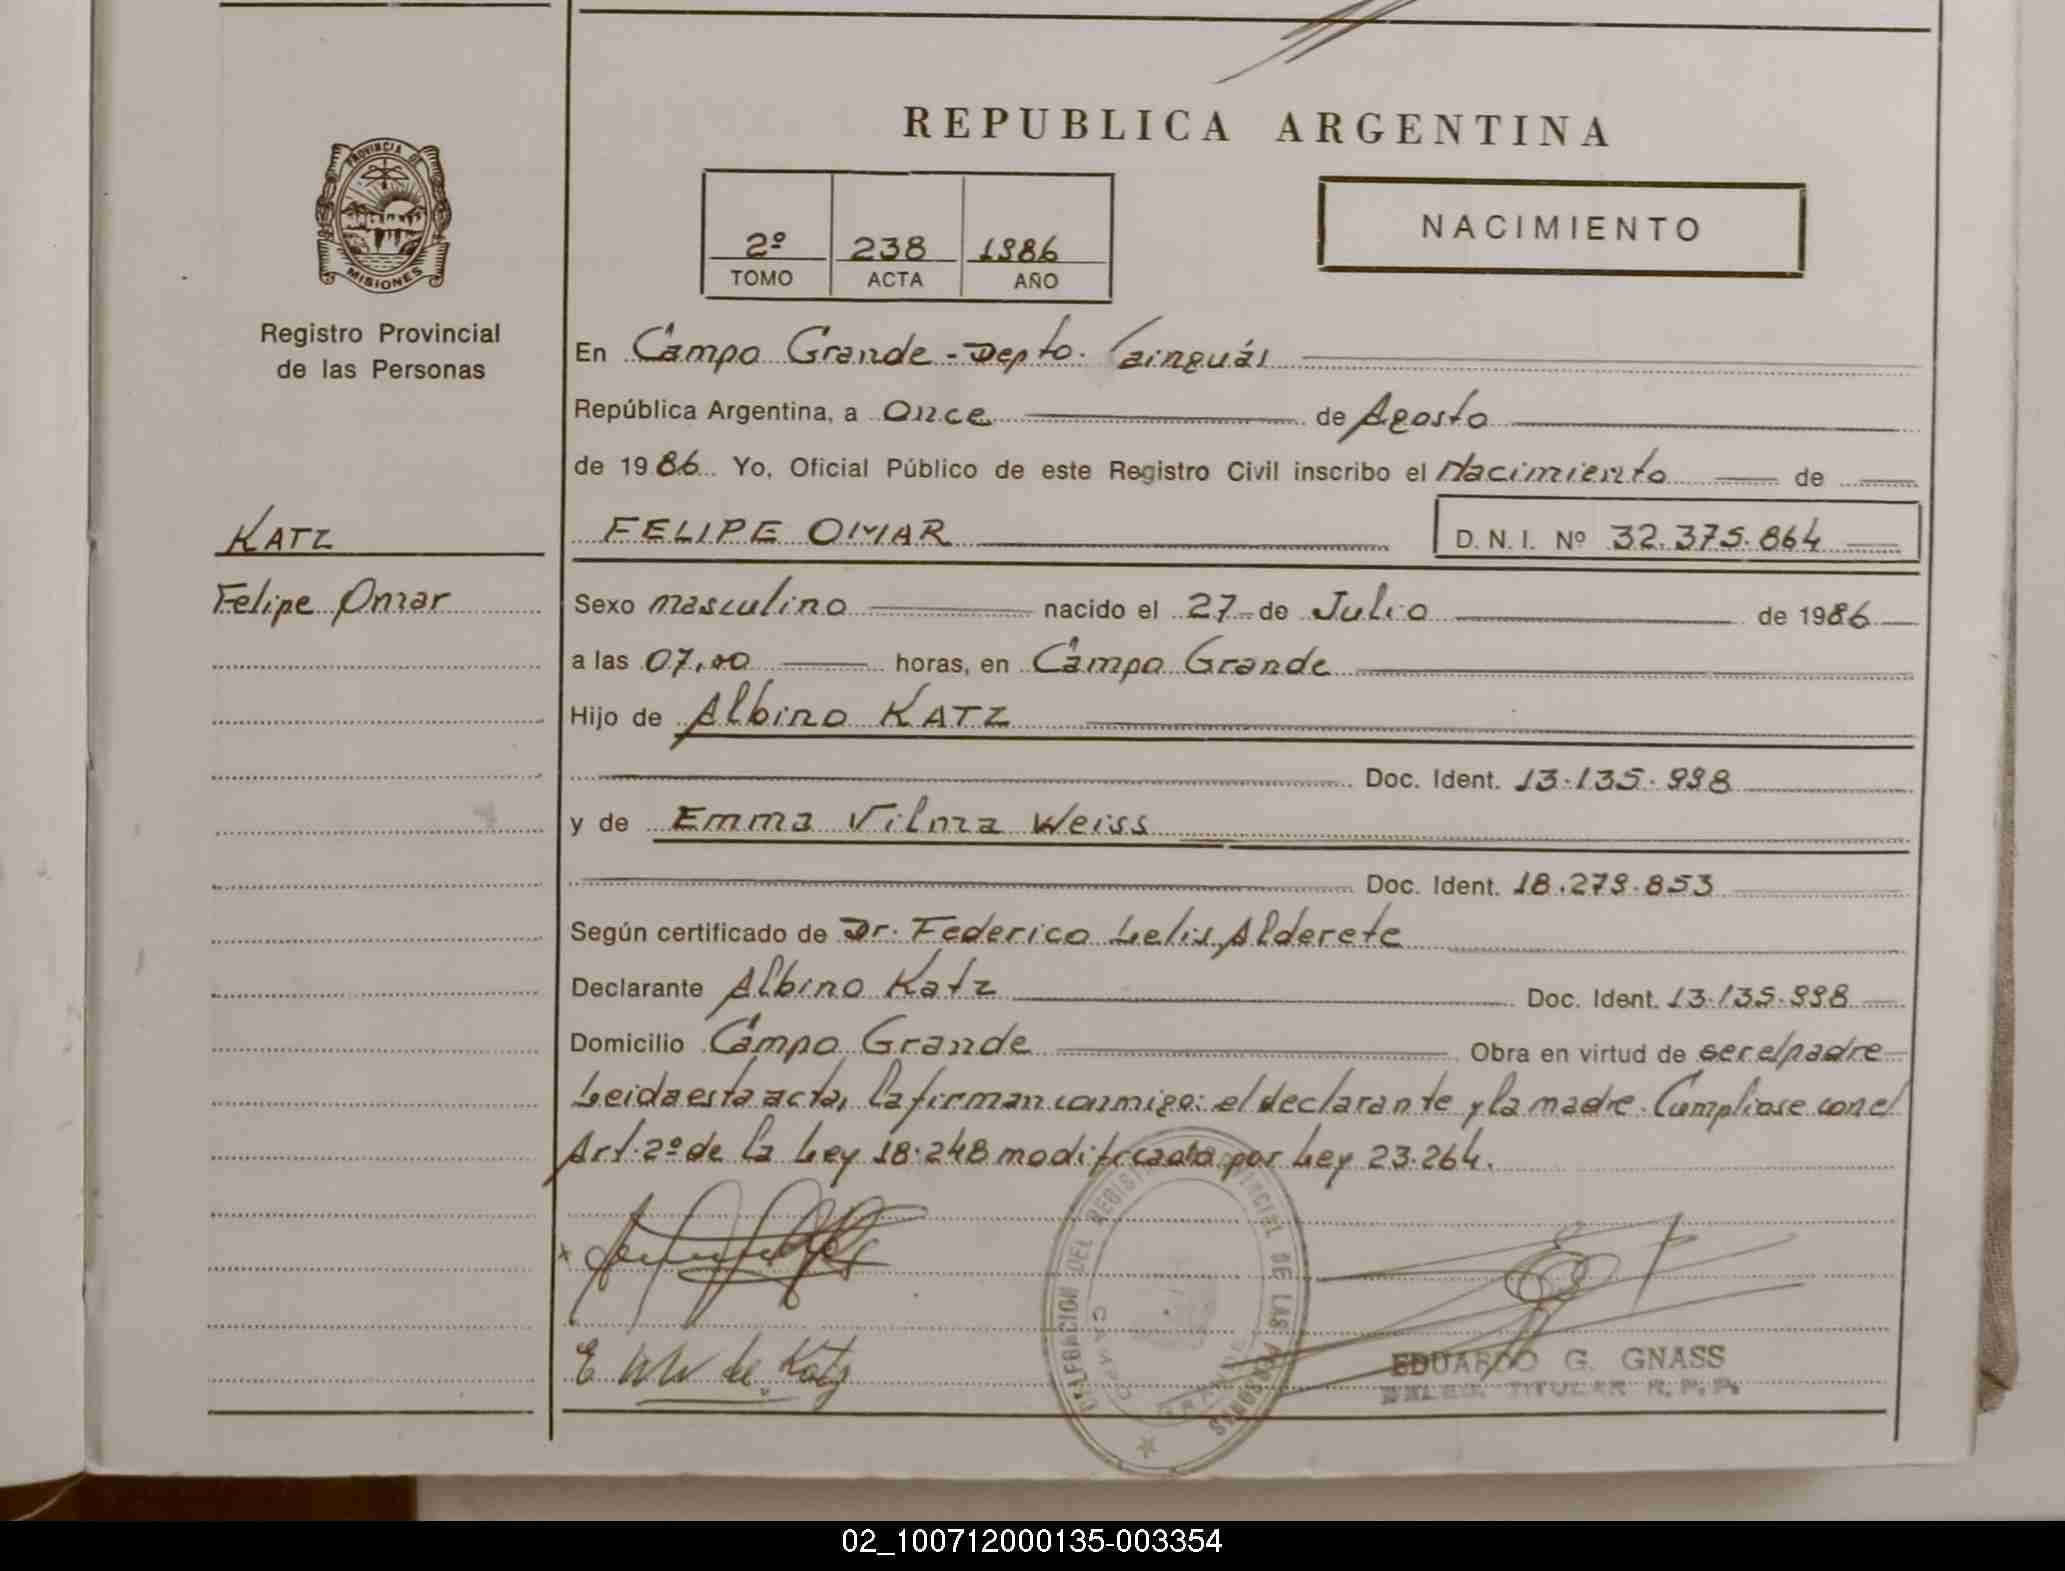 REPUBLICA ARGENTINA
PROVINCIA DE
MISIONES
Registro Provincial
de las Personas
2º 238 1986
TOMO ACTA AÑO
NACIMIENTO
En Campo Grande - Depto. Cainguás
República Argentina, a Once de Agosto
de 1986 Yo, Oficial Público de este Registro Civil inscribo el Nacimiento de
KATZ
Felipe Omar
FELIPE OMAR D. N. I. Nº 32.375.864
Sexo masculino nacido el 27 de Julio de 1986
a las 07,00 horas, en Campo Grande
Hijo de Albino KATZ
Doc. Ident. 13.135.998
y de Emma Vilma Weiss
Doc. Ident. 18.279.853
Según certificado de Dr. Federico Lelis Alderete
Declarante Albino Katz Doc. Ident. 13.135.998
Domicilio Campo Grande Obra en virtud de ser el padre
Leida esta acta, la firman conmigo: el declarante y la madre. Cumpliose con el
Art. 2º de la Ley 18.248 modificada por Ley 23.264.
E W de Katz
DELEGACION DEL REGISTRO PROVINCIAL DE LAS PERSONAS
CAMPO GRANDE
EDUARDO G. GNASS
DELEG. TITULAR R. P. P.
02_100712000135-003354